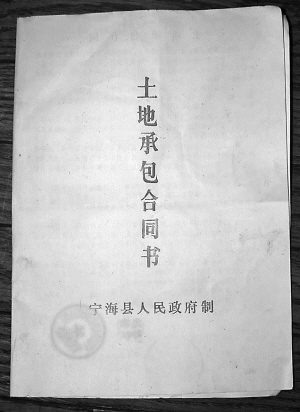 土地承包合同书
宁海县人民政府制